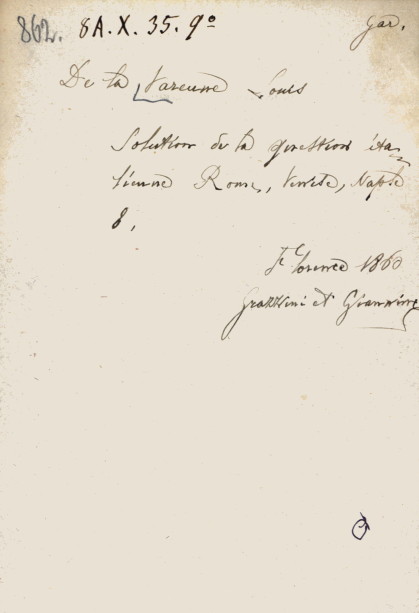 862. 8A.X.35.9º Gar.
De la Varenne Louis
Solution de la question ita-
lienne Rome, Venise, Naple
8,
Florence 1860
Grazzini et Giannini